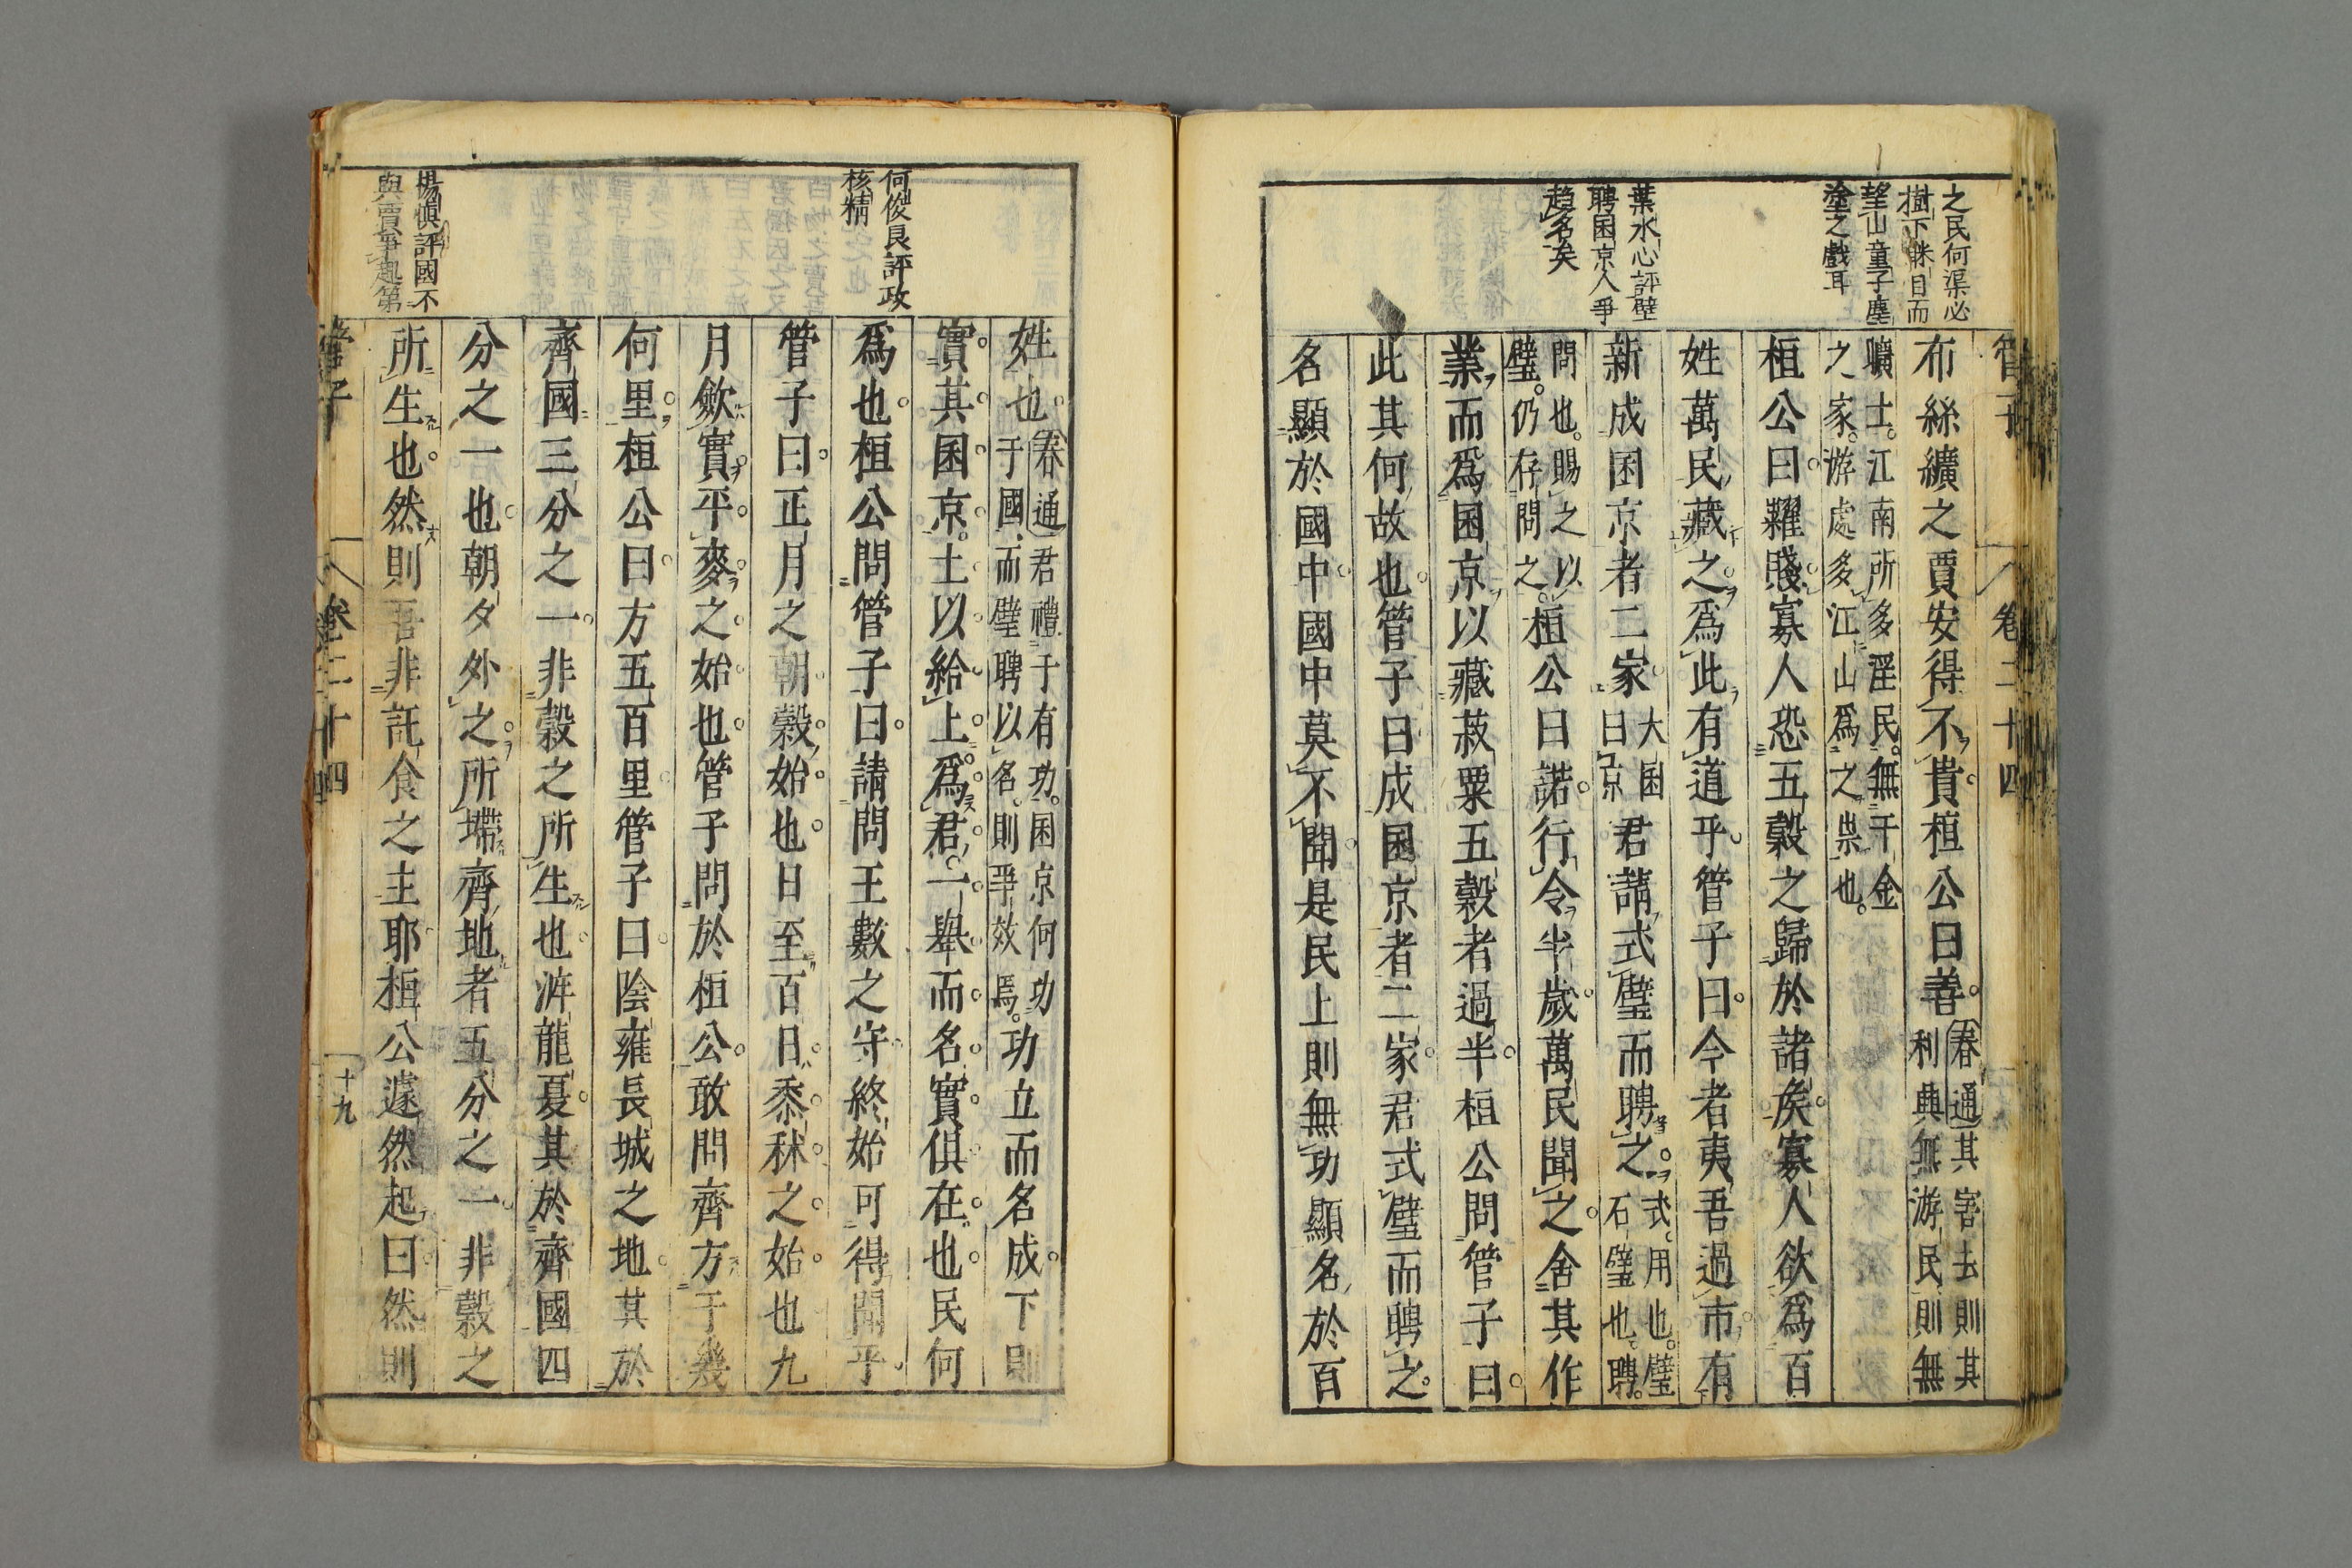 管子
卷二十四
之民何渠必
樹下眯目而
望山童子塵
塗之戲耳
葉水心評璧
聘囷京人爭
趨名矣
布絲纊之賈安得不貴桓公曰善春通其害去則其
利典無游民則無
曠土江南所多淫民無千金
之家游處多江山爲之祟也
桓公曰糴賤寡人恐五穀之歸於諸矦寡人欲爲百
姓萬民藏之爲此有道乎管子曰今者夷吾過市有
新成囷京者二家大囷
曰京君請式璧而聘之式用也璧
石璧也聘
問也賜之以
璧仍存問之桓公曰諾行令半歲萬民聞之舍其作
業而爲囷京以藏菽粟五穀者過半桓公問管子曰
此其何故也管子曰成囷京者二家君式璧而聘之
名顯於國中國中莫不聞是民上則無功顯名於百
何俊良評政
核精
楊慎評國不
與賈爭起第
姓也春通君禮于有功囷京何功
于國而璧聘以名則爭效焉功立而名成下則
實其囷京士以給上爲君一舉而名實俱在也民何
爲也桓公問管子曰請問王數之守終始可得聞乎
管子曰正月之朝穀始也日至百日黍秫之始也九
月歛實平麥之始也管子問於桓公敢問齊方于幾
何里桓公曰方五百里管子曰陰雍長城之地其於
齊國三分之一非穀之所生也洊龍夏其於齊國四
分之一也朝夕外之所墆齊地者五分之一非穀之
所生也然則吾非託食之主耶桓公遽然起曰然則
管子
卷二十四
十九